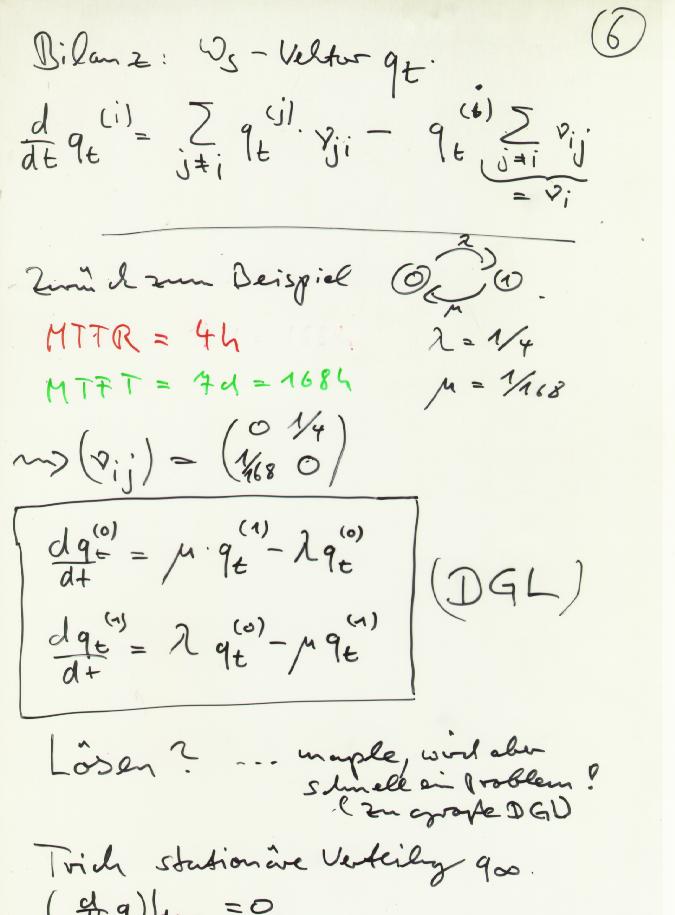 6
Bilanz: Ws-Vektor q_t.
d/dt q_t^(i) = Σ_{j≠i} q_t^(j) · ν_ji − q_t^(i) Σ_{j≠i} ν_ij
= ν_i
Zurück zum Beispiel 0 λ 1 μ .
MTTR = 4h λ = 1/4
MTFT = 7d = 168h μ = 1/168
⇝ (ν_ij) = ( 0 1/4
1/168 0 )
dq_t^(0)/dt = μ · q_t^(1) − λ q_t^(0)
(DGL)
dq_t^(1)/dt = λ q_t^(0) − μ q_t^(1)
Lösen? ... maple, wird aber
schnell ein Problem!
(zu große DGL)
Trick stationäre Verteilg q_∞.
(d/dt q)| = 0